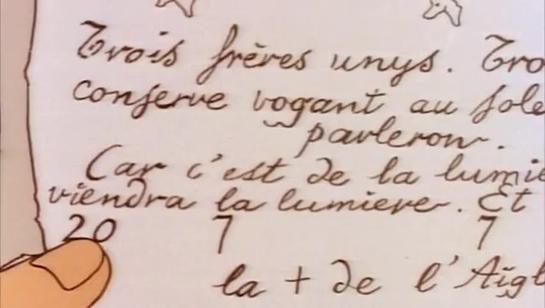 Trois frères unys. Tro
conserve vogant au sole
parleron.
Car c'est de la lumie
viendra la lumiere. Et
20 7 7
la + de l'Aigl